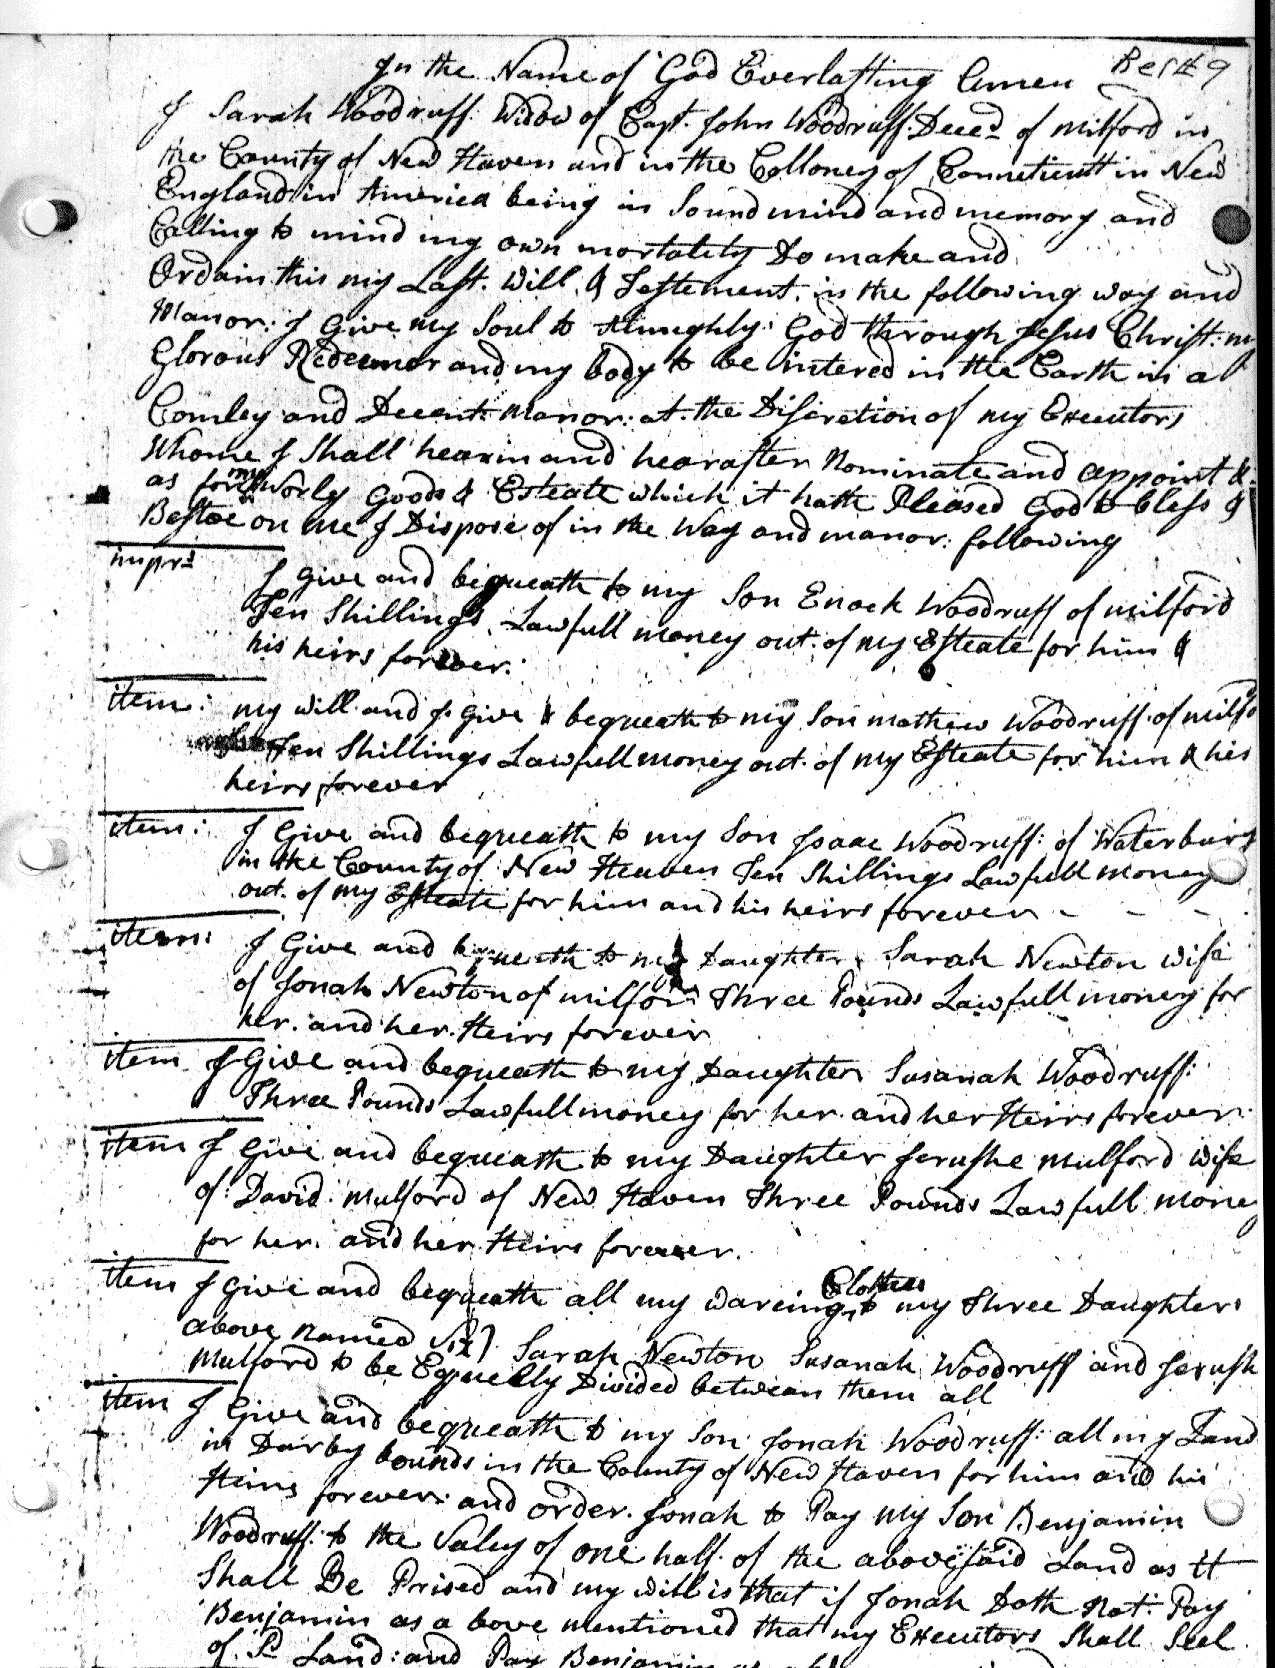 In the Name of God Everlasting Amen
I Sarah Woodruff: Widow of Capt. John Woodruff: Deced of Milford in
the County of New Haven and in the Colloney of Connetticutt in New
England in America being in Sound mind and memory and
Calling to mind my own mortality Do make and
Ordain this my Last. Will & Testement. in the following way and
Manor: I Give my Soul to Almughly God through Jesus Christ: my
Glorous Redeemer and my body to be intered in the Earth in a
Comley and Decent Manor: at the Discretion of my Executors
Whome I Shall hearin and hearafter Nominate and appoint &
as for my Worly Goods & Esteate which it hath Pleased God to bless &
Bestoe on me I Dispose of in the Way and manor: following
imprs
I give and bequeath to my Son Enoch Woodruff of milford
Ten Shillings Lawfull money out of my Esteate for him &
his heirs forever.
item: my will and I Give & bequeath to my Son mathew Woodruff of
Ten Shillings Lawfull money out of my Esteate for him & his
heirs forever
item: I Give and bequeath to my Son Isaac Woodruff: of Waterbury
in the County of New Heaven Ten Shillings Lawfull money
out of my Esteate for him and his heirs forever - - -
item: I Give and bequeath to my Daughter Sarah Newton wife
of Jonah Newton of milford Three Pounds Lawfull money for
her and her Heirs forever
item I Give and bequeath to my Daughter Susanah Woodruff:
Three Pounds Lawfull money for her and her Heirs forever
item I Give and bequeath to my Daughter Jerushe Mulford wife
of David Mulford of New Haven Three Pounds Lawfull money
for her and her Heirs forever.
item I Give and bequeath all my wareing Clothes to my Three Daughters
above named viz Sarah Newton Susanah Woodruff and Jerush
Mulford to be Equelly Divided between them all
item I Give and bequeath to my Son Jonah Woodruff: all my Land
in Darby bounds in the County of New Haven for him and his
Heirs forever: and order Jonah to Pay my Son Benjamin
Woodruff: to the Valey of one half of the above said Land as it
Shall Be Prised and my will is that if Jonah Doth Not Pay
Benjamin as a bove mentioned that my Executors Shall Seel
of Sd Land: and Pay Benjamin as